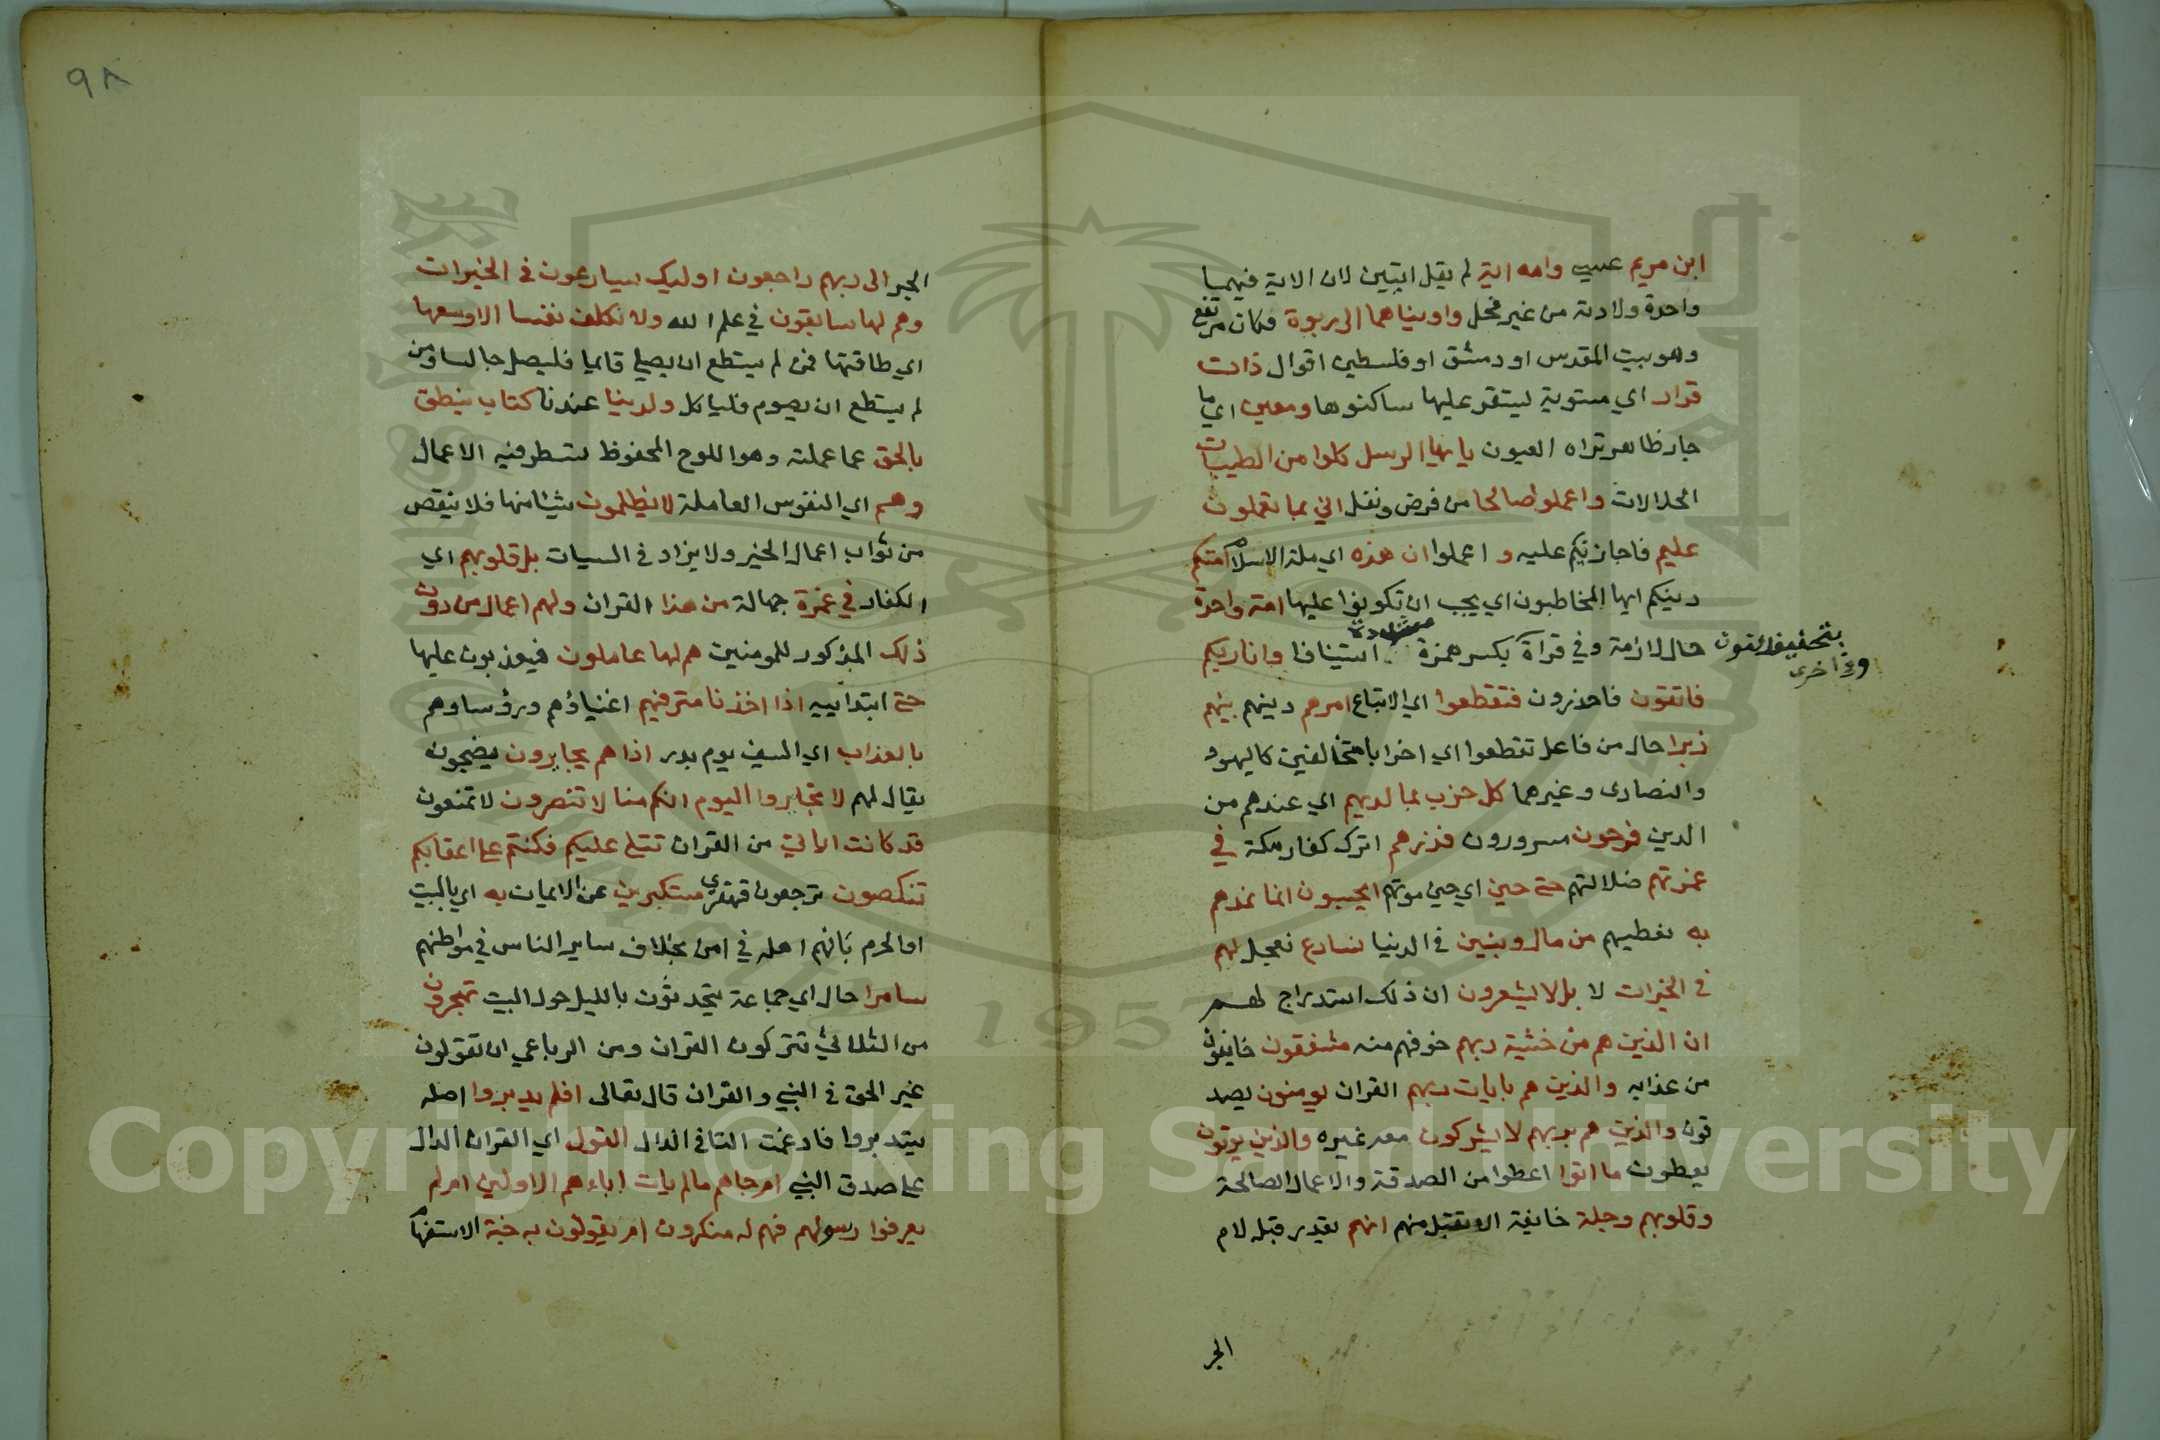 ابن مريم عيسى وامه اية لم يقل ايتين لان الاية فيهما
واحدة ولادته من غير فحل واويناهما الى ربوة مكان مرتفع
وهو بيت المقدس او دمشق او فلسطين اقوال ذات
قرار اي مستوية ليستقر عليها ساكنوها ومعين اي ما
جار ظاهر تراه العيون يايها الرسل كلوا من الطيبات
الحلالات واعملوا صالحا من فرض ونفل اني بما تعملون
عليم فاجازيكم عليه و اعملوا ان هذه اي ملة الاسلام امتكم
دينكم ايها المخاطبون اي يجب ان تكونوا عليها امة واحدة
حال لازمة وفي قراة بكسر همزة استينافا وانا ربكم
بتخفيف النون
وفي اخرى
مشددة
فاتقون فاحذرون فتقطعوا اي الاتباع امرهم دينهم بينهم
زبرا حال من فاعل تقطعوا اي احزابا متخالفين كاليهود
والنصارى وغيرهما كل حزب بما لديهم اي عندهم من
الدين فرحون مسرورون فذرهم اترك كفار مكة في
غمرتهم ضلالتهم حتى حين اي حين موتهم ايحسبون انما نمدهم
به نعطيهم من مال وبنين في الدنيا نسارع نعجل لهم
في الخيرات لا بل لا يشعرون ان ذلك استدراج لهم
ان الذين هم من خشية ربهم خوفهم منه مشفقون خايفون
من عذابه والذين هم بايات ربهم القران يومنون يصد
قون والذين هم بربهم لا يشركون معه غيره والذين يوتون
يعطون ما اتوا اعطوا من الصدقة والاعمال الصالحة
وقلوبهم وجلة خايفة الا تقبل منهم انهم يقدر قبله لام
الجر
٩٨
الجر الى ربهم راجعون اوليك يسارعون في الخيرات
وهم لها سابقون في علم الله ولا نكلف نفسا الا وسعها
اي طاقتها فمن لم يستطع ان يصلي قايما فليصل جالسا ومن
لم يستطع ان يصوم فلياكل ولدينا عندنا كتاب ينطق
بالحق عما عملته وهو اللوح المحفوظ تسطر فيه الاعمال
وهم اي النفوس العاملة لا يظلمون شيئا منها فلا ينقص
من ثواب اعمال الخير ولا يزاد في السيات بل قلوبهم اي
الكفار في غمرة جهالة من هذا القران ولهم اعمال من دون
ذلك المذكور للمومنين هم لها عاملون فيعذبون عليها
حتى ابتداييه اذا اخذنا مترفيهم اغنياؤهم ورؤساوهم
بالعذاب اي السيف يوم بدر اذا هم يجايرون يضجون
يقال لهم لا تجايروا اليوم انكم منا لا تنصرون لا تمنعون
قد كانت اياتي من القران تتلى عليكم فكنتم على اعقابكم
تنكصون ترجعون قهقرى مستكبرين عن الايمان به اي بالبيت
او الحرم بانهم اهله في امن بخلاف ساير الناس في مواطنهم
سامرا حال اي جماعة يتحدثون بالليل حول البيت تهجرون
من الثلاثي تتركون القران ومن الرباعي اي تقولون
غير الحق في النبي والقران قال تعالى افلم يدبروا اصله
يتدبروا فادغمت التا في الدال القول اي القران الدال
على صدق النبي ام جاهم مالم يات اباءهم الاولين ام لم
يعرفوا رسولهم فهم له منكرون ام يقولون به جنة الاستفهام
Copyright © King Saud University
1957